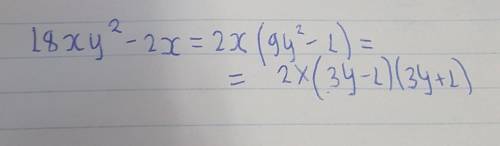 18xy² - 2x = 2x(9y² - 1) =
= 2x(3y - 1)(3y + 1)